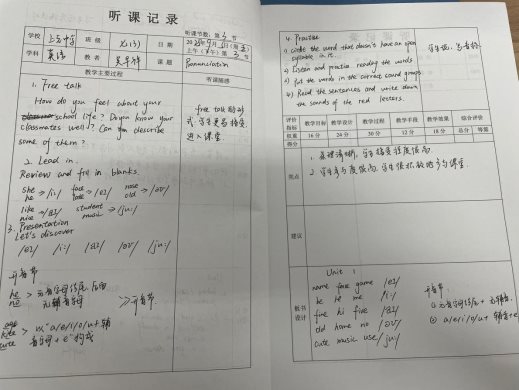 听课记录
听课节数:第3节
学校
班级
七(3)
日期
学科
英语
教者
课题
Pronunciation
教学主要过程
听课随感
1. Free talk
How do you feel about your
school life? Do you know your
classmates well? Can you describe
some of them?
2. Lead in.
Review and fill in blanks.
she he > /i:/ face late > /eɪ/ nose old > /əʊ/
like nice > /aɪ/ student music > /ju:/
3. Presentation
Let's discover
/eɪ/ /i:/ /aɪ/ /əʊ/ /ju:/
开音节
he > 元音字母结尾,后面
无辅音字母
>开音节
cute > a/e/i/o/u+辅
音字母+e 构成
free talk的形
式,学生更易接受,
进入课堂
4. Practise
1) Circle the word that doesn't have an open
syllable in it.
2) Listen and practise reading the words
3) Put the words in the correct sound groups.
4) Read the sentences and write down
the sounds of the red letters.
评价指标
教学目标
教学设计
教学过程
教学手段
教学效果
综合评价
权重
16分
24分
30分
12分
18分
总分
等第
得分
亮点
1. 条理清晰,学生接受程度高
2. 学生参与度很高,学生很积极地参与课堂.
建议
板书设计
Unit 1
name face game /eɪ/
he me /i:/
five hi fire /aɪ/
old home no /əʊ/
cute music use /ju:/
开音节
① 元音字母结尾+无辅音
② a/e/i/o/u+辅音+e